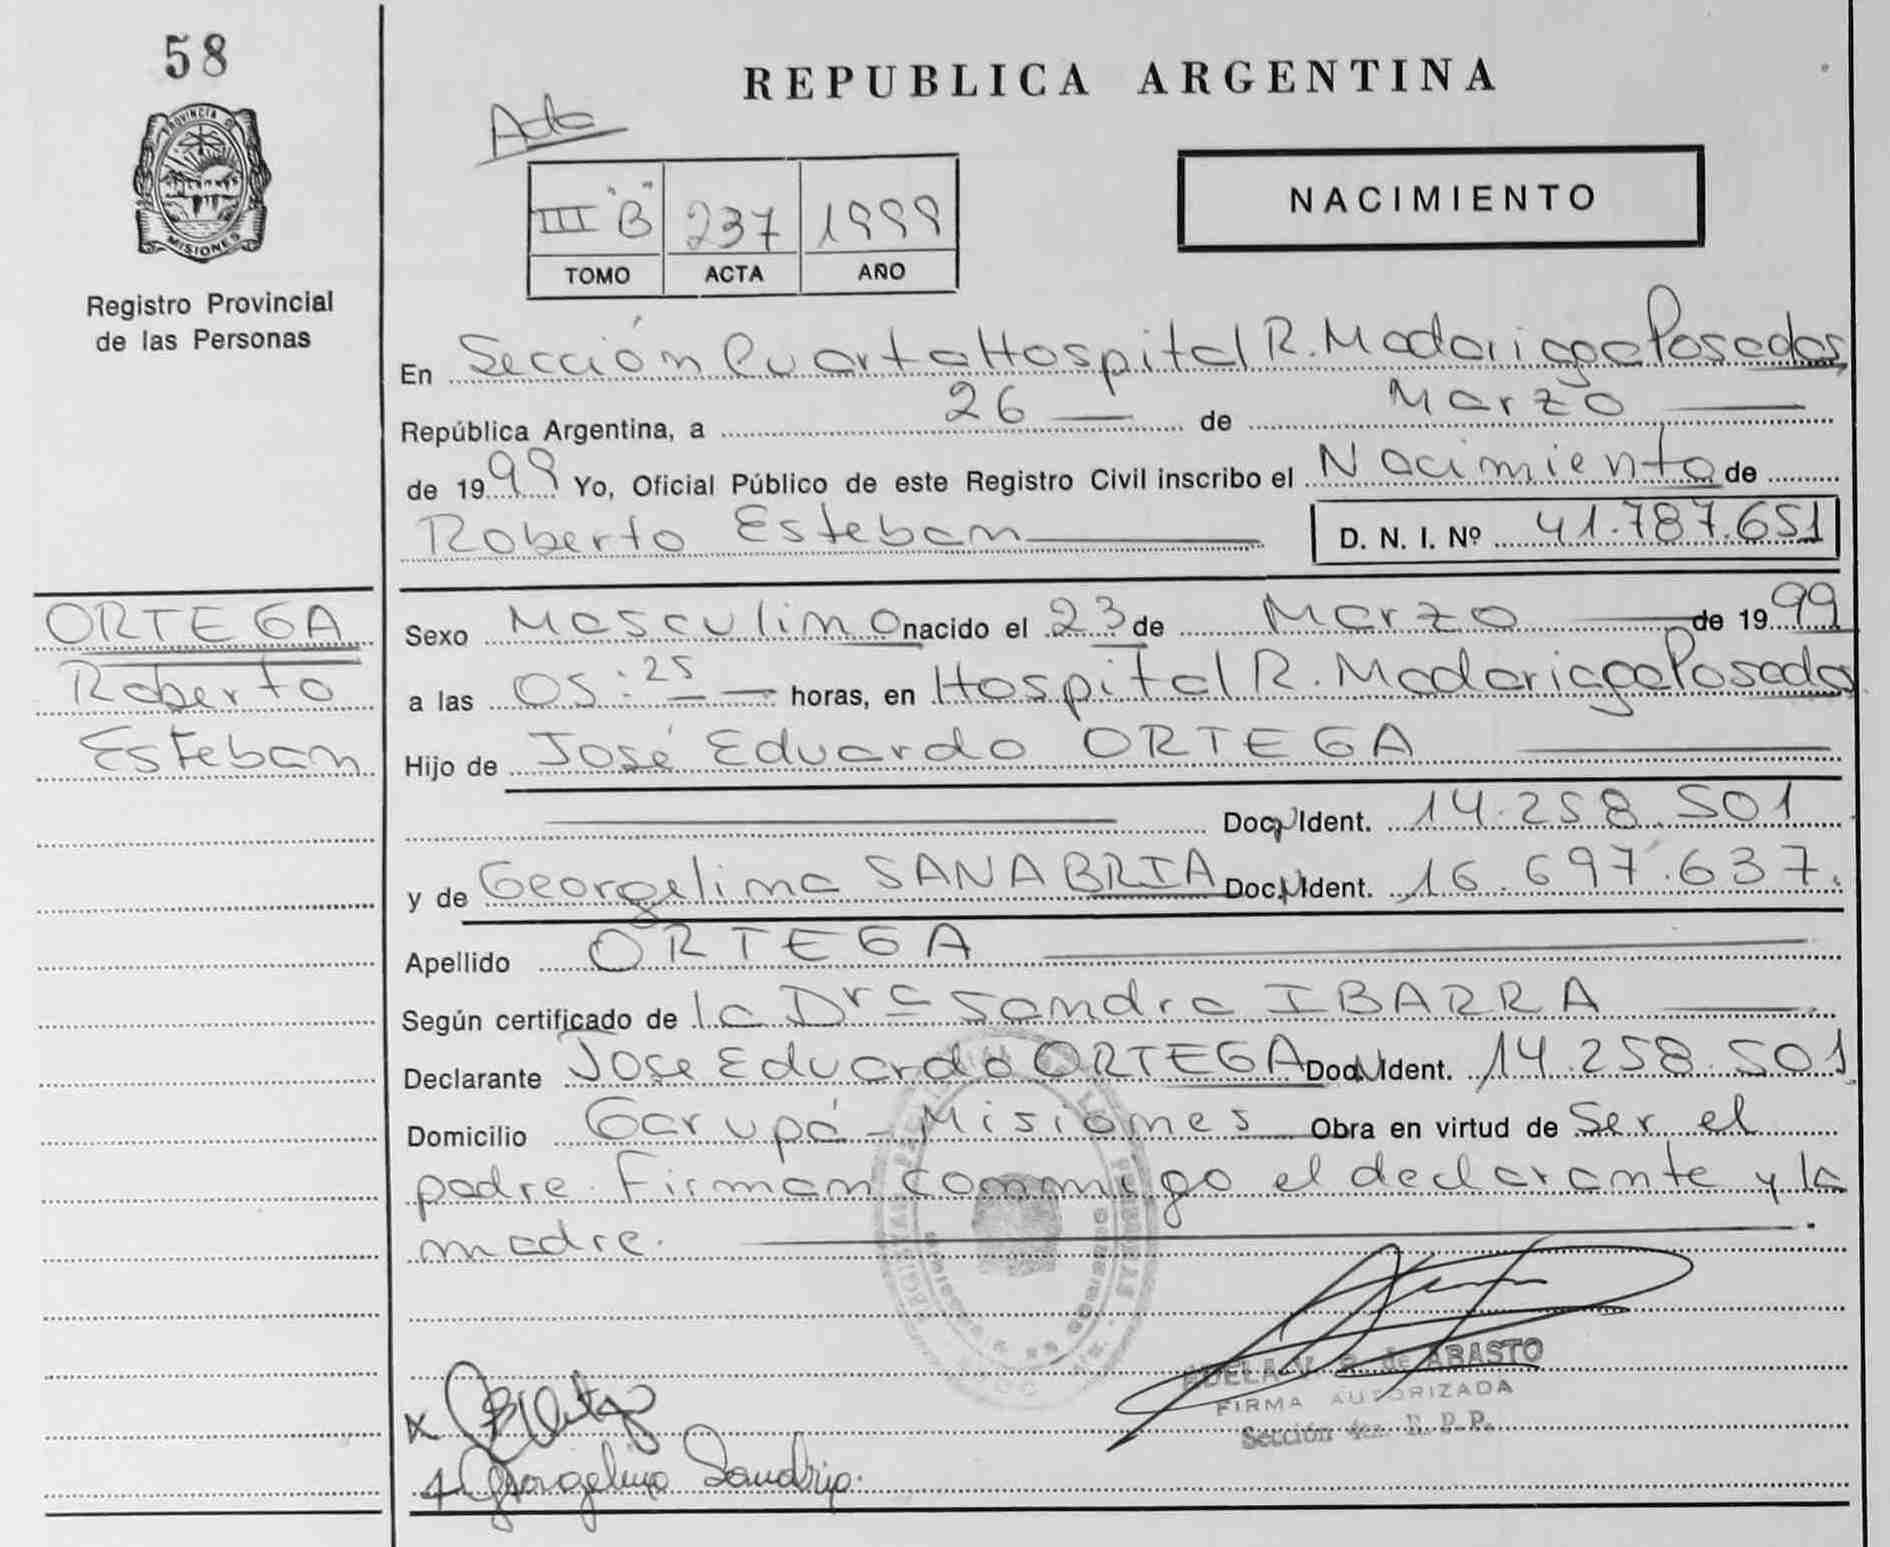 58
PROVINCIA DE
MISIONES
Registro Provincial
de las Personas
REPUBLICA ARGENTINA
Acta
III "B" 237 1999
TOMO ACTA AÑO
NACIMIENTO
En Sección Cuarta Hospital R. Madariaga Posadas,
República Argentina, a 26 de Marzo
de 1999 Yo, Oficial Público de este Registro Civil inscribo el Nacimiento de
Roberto Esteban D. N. I. Nº 41.787.651
ORTEGA
Roberto
Esteban
Sexo Masculino nacido el 23 de Marzo de 1999
a las 05:25 horas, en Hospital R. Madariaga Posadas
Hijo de José Eduardo ORTEGA
Doc. Ident. 14.258.501
y de Georgelina SANABRIA Doc. Ident. 16.697.637.
Apellido ORTEGA
Según certificado de la Dra Sandra IBARRA
Declarante Jose Eduardo ORTEGA Doc. Ident. 14.258.501
Domicilio Garupá - Misiones Obra en virtud de Ser el
padre. Firman conmigo el declarante y la
madre.
ADELA V. de ABASTO
FIRMA AUTORIZADA
Sección 4ta. R. P. P.
Georgelina Sanabria.